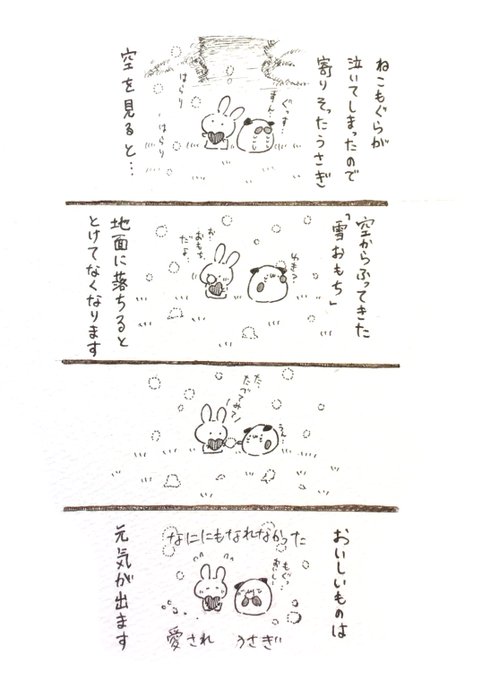 ねこもぐらが
泣いてしまったので
寄りそったうさぎ
ぐっす…
すん…
はらり
はらり
空を見ると…
空からふってきた
「雪おもち」
ゆき？
お
おもち
だよ。
地面に落ちると
とけてなくなります
うん…
た…
たべてみて！
おいしいものは
なににもなれなかった
もぐっ…
おいしー
愛され うさぎ
元気が出ます